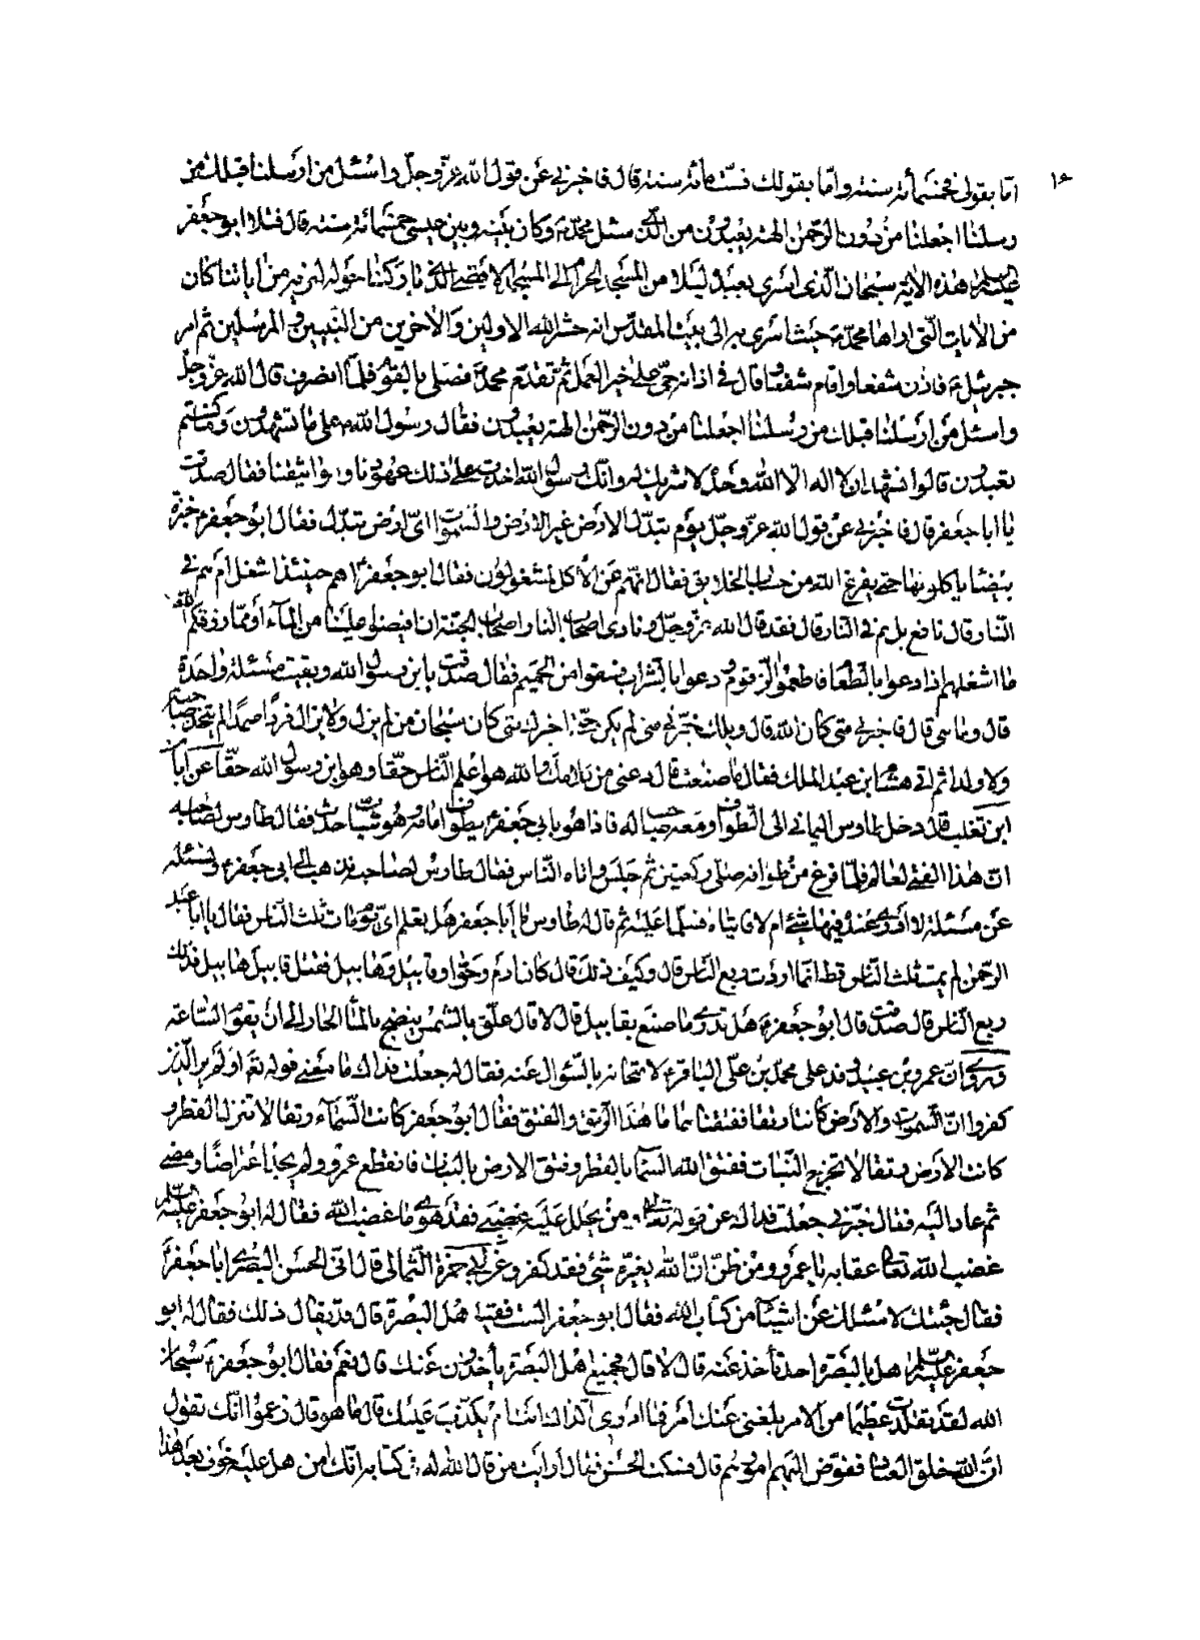 اما بقولى فخمسمائة سنة واما بقولك فستمائة سنة قال فاخبرنى عن قول الله عز وجل واسئل من ارسلنا قبلك من
رسلنا اجعلنا من دون الرحمن الهة يعبدون من الذى سئل محمد ص وكان بينه وبين عيسى خمسمائة سنة قال فتلا ابو جعفر
عليه السلم هذه الاية سبحان الذى اسرى بعبده ليلا من المسجد الحرام الى المسجد الاقصى الذى باركنا حوله لنريه من اياتنا كان
من الايات التى اراها محمد ص حيث اسرى به الى بيت المقدس انه حشر الله الاولين والاخرين من النبيين والمرسلين ثم امر
جبرئيل ع فاذن شفعا واقام شفعا وقال فى اذانه حى على خير العمل ثم تقدم محمد ص فصلى بالقوم فلما انصرف قال الله عز وجل
واسئل من ارسلنا قبلك من رسلنا اجعلنا من دون الرحمن الهة يعبدون فقال رسول الله ص على ما تشهدون وما كنتم
تعبدون قالوا نشهد ان لا اله الا الله وحده لا شريك له وانك رسول الله اخذت على ذلك عهودنا ومواثيقنا فقال صدقت
يا ابا جعفر قال فاخبرنى عن قول الله عز وجل يوم تبدل الارض غير الارض والسموات اى ارض تبدل فقال ابو جعفر ع خبزة
بيضا ياكلونها حتى يفرغ الله من حساب الخلايق فقال انهم عن الاكل لمشغولون فقال ابو جعفر ع اهم حينئذ اشغل ام هم فى
النار قال نافع بل هم فى النار قال فقد قال الله عز وجل ونادى اصحاب النار اصحاب الجنة ان افيضوا علينا من الماء او مما رزقكم الله
ما اشغلهم اذا دعوا بالطعام فاطعموا الزقوم ودعوا بالشراب فسقوا من الحميم فقال صدقت يابن رسول الله وبقيت مسئلة واحدة
قال وما هى قال فاخبرنى متى كان الله قال ويلك خبرنى متى لم يكن حتى اخبرك متى كان سبحان من لم يزل ولا يزال فردا صمدا لم يتخذ صاحبة
ولا ولدا ثم اتى هشام ابن عبد الملك فقال ما صنعت قال دعنى من كلامك والله هو اعلم الناس حقا وهو ابن رسول الله حقا عن ابان
ابن تغلب قال دخل طاوس اليمانى الى الطواف ومعه صاحب له فاذا هو بابى جعفر ع يطوف امامه وهو شاب حدث فقال طاوس لصاحبه
ان هذا الفتى لعالم فلما فرغ من طوافه صلى ركعتين ثم جلس واتاه الناس فقال طاوس لصاحبه نذهب الى ابى جعفر ع ونسئله
عن مسئلة لا ادرى عنده فيها شئ ام لا فاتياه فسلما عليه ثم قال له طاوس يا ابا جعفر هل تعلم اى يوم مات ثلث الناس فقال يا ابا عبد
الرحمن لم يمت ثلث الناس قط انما اردت ربع الناس قال وكيف ذلك قال كان ادم وحوا وقابيل وهابيل فقتل قابيل هابيل فذلك
ربع الناس قال صدقت قال ابو جعفر ع هل تدرى ما صنع بقابيل قال لا قال علق بالشمس ينضح بالماء الحار الى ان تقوم الساعة
وروى ان عمرو بن عبيد وفد على محمد بن على الباقر ع لامتحانه بالسؤال عنه فقال له جعلت فداك ما معنى قوله تعالى اولم ير الذين
كفروا ان السموات والارض كانتا رتقا ففتقناهما ما هذا الرتق والفتق فقال ابو جعفر كانت السماء رتقا لا تنزل القطر و
كانت الارض رتقا لا تخرج النبات ففتق الله السما بالقطر وفتق الارض بالنبات فانقطع عمرو ولم يجد اعتراضا ومضى
ثم عاد اليه فقال خبرنى جعلت فداك عن قوله تعالى ومن يحلل عليه غضبى فقد هوى ما غضب الله فقال له ابو جعفر عليه السلم
غضب الله تعالى عقابه يا عمرو ومن ظن ان الله يغيره شئ فقد كفر وعن ابى حمزة الثمالى قال اتى الحسن البصرى ابا جعفر ع
فقال جئتك لاسئلك عن اشيا من كتاب الله فقال ابو جعفر الست فقيه اهل البصرة قال قد يقال ذلك فقال له ابو
جعفر عليه السلم هل بالبصرة احد تاخذ عنه قال لا قال فجميع اهل البصرة ياخذون عنك قال نعم فقال ابو جعفر ع سبحان
الله لقد تقلدت عظيما من الامر بلغنى عنك امر فما ادرى اكذاك انت ام يكذب عليك قال ما هو قال زعموا انك تقول
ان الله خلق العباد ففوض اليهم امورهم قال فسكت الحسن فقال ارايت من قال الله له فى كتابه انك امن هل عليه خوف بعد هذا